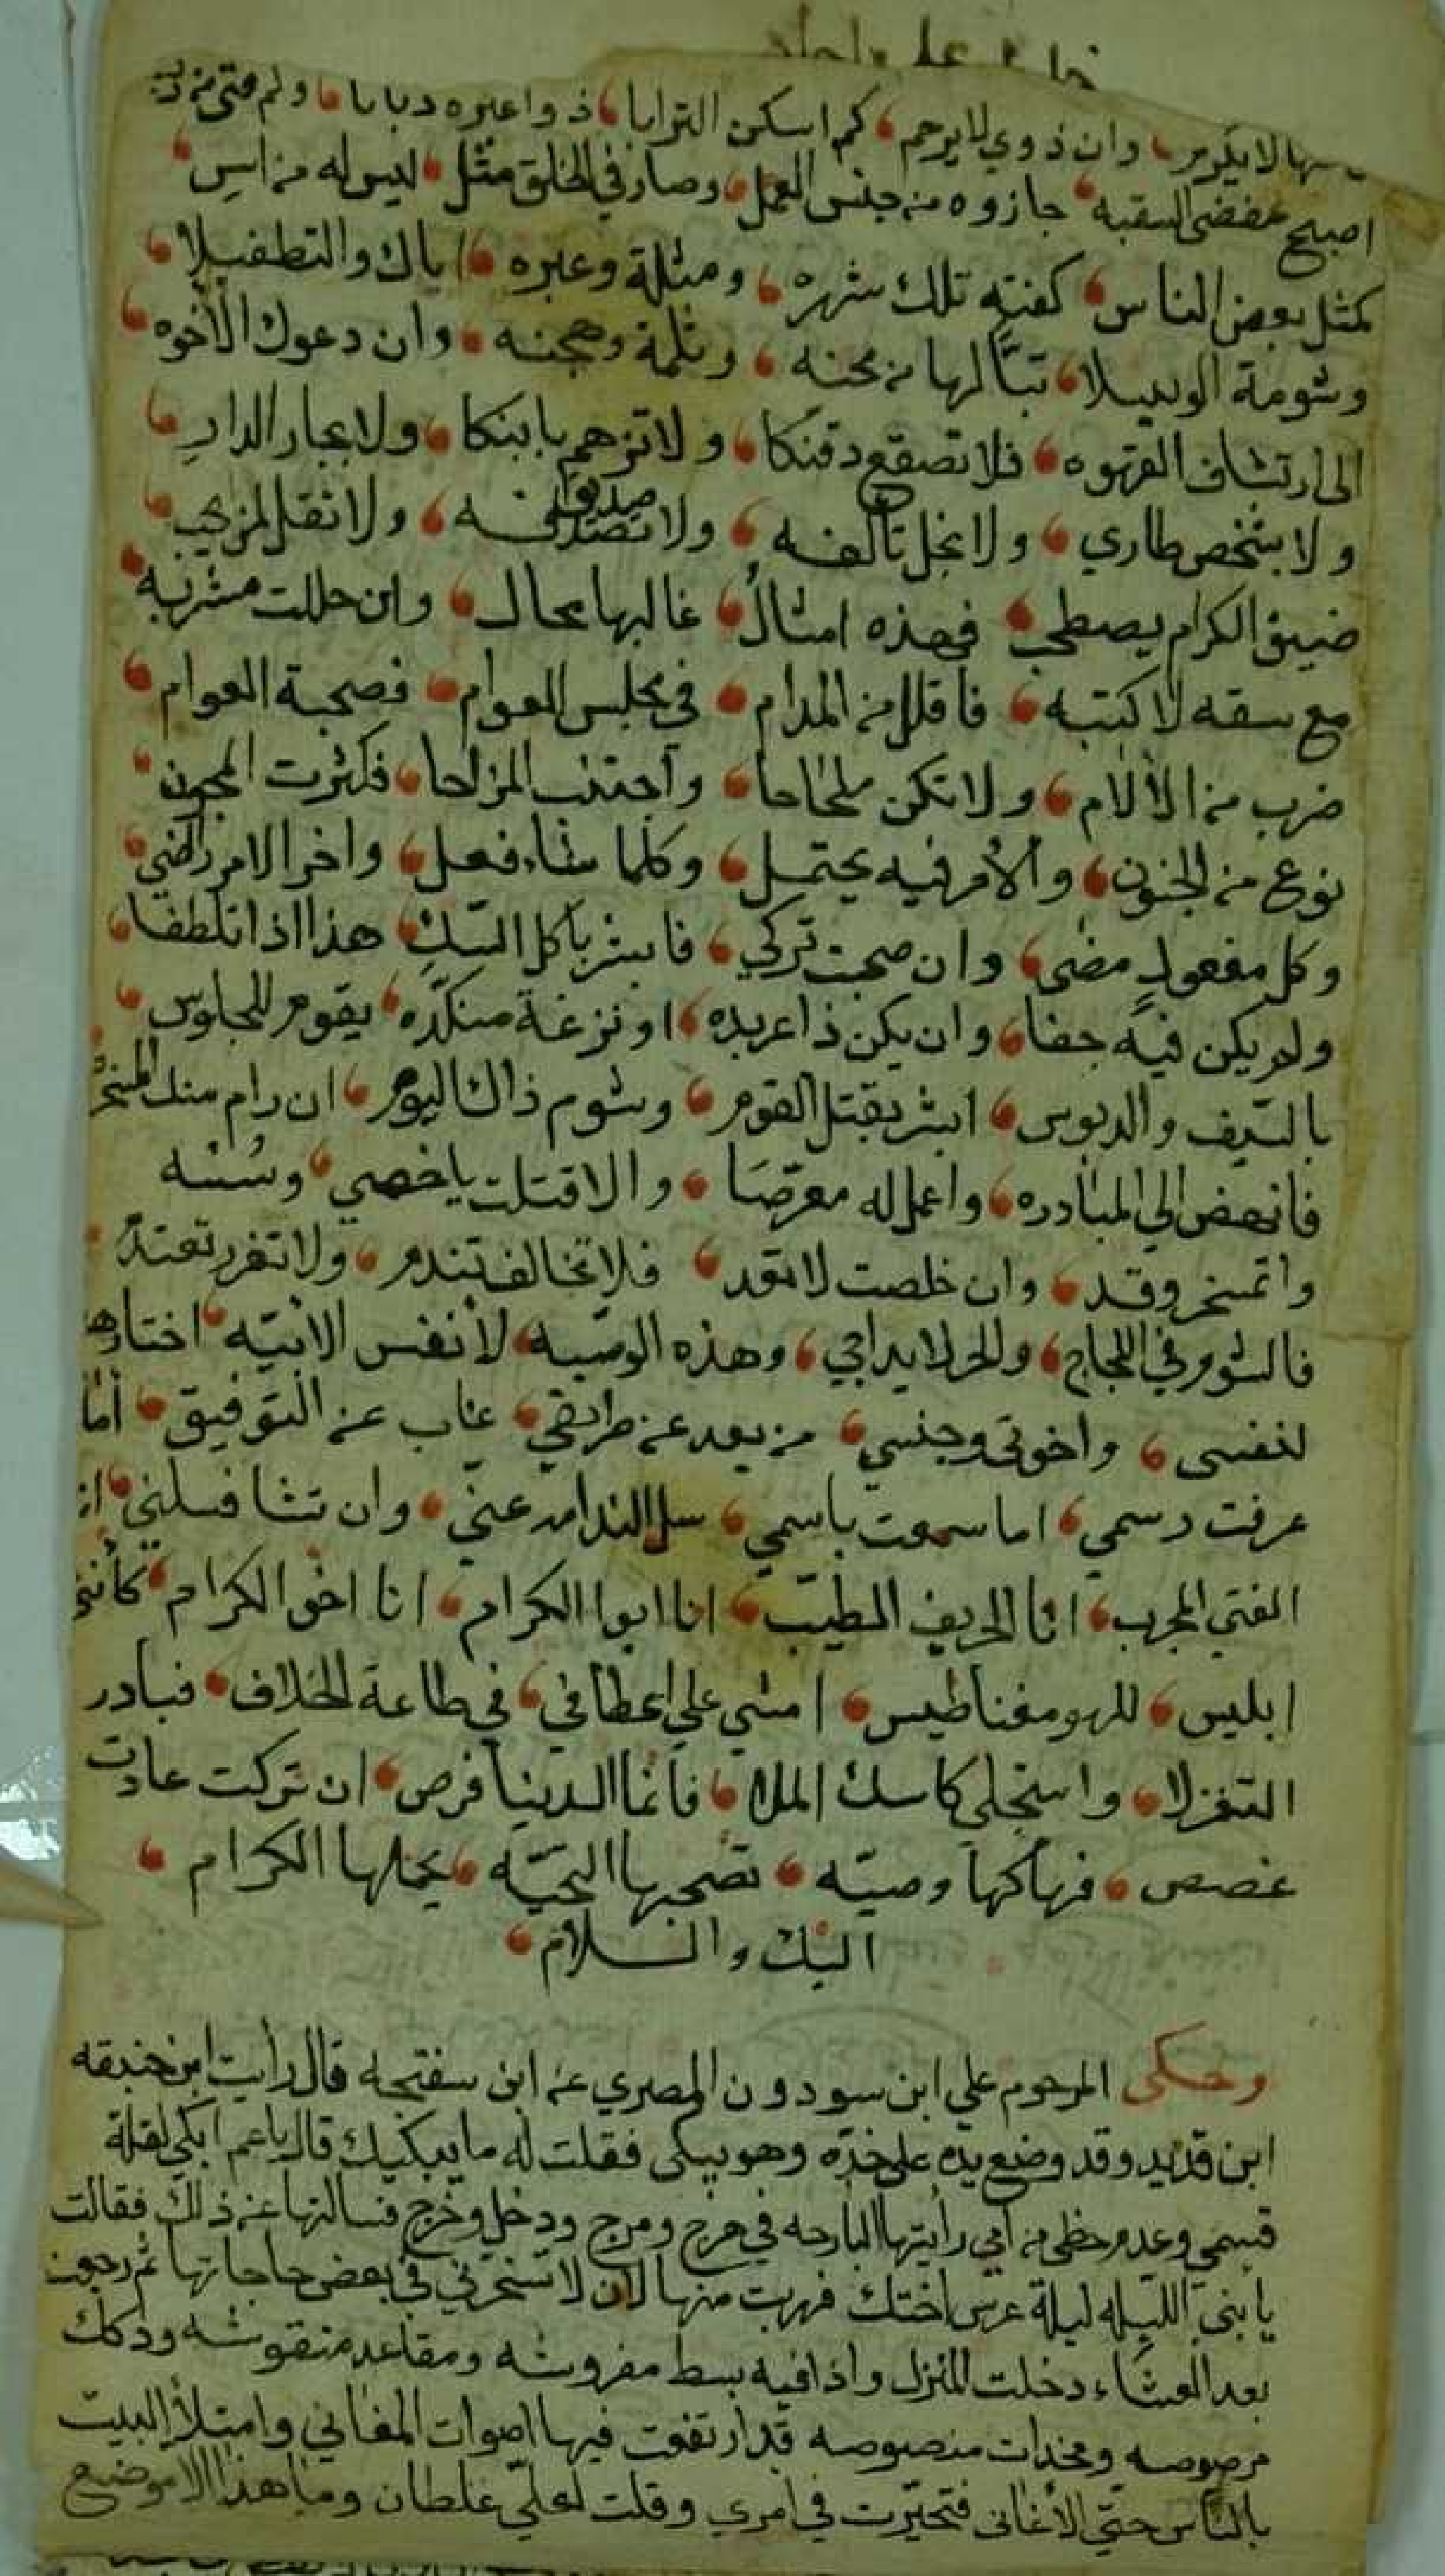 لا يكرم، وان ذوي لا يرحم، كم اسكن الترابا، ذوا عبره دبابا، ولم فتى من
اصبح مفضى السقبه، جازوه من جنس العمل، وصار في الخلق مثل، ليس له من اس،
كمثل بعض الناس، كفته تلك شهره، ومثلة وعبره، اياك والتطفيلا،
وشومة الوبيلا، تبا لها من محنه، وثلمة وهجنه، وان دعوك الاخوه،
الى ارتشاف القهوه، فلا تصقع دقنكا، ولا تزهم بابنكا، ولا بجار الدار،
ولا بشخص طاري، ولا بخل تالفه، ولا صديق تصدفه، ولا نقل لمن يحب،
ضيق الكرام يصطحب، فهذه امثال، غالبها محال، وان حللت مشربه،
مع سقه لا كتبه، فاقلل من المدام، في مجلس العوام، فصحبة العوام،
ضرب من الالام، ولا تكن ملحاحا، واجتنب المزاحا، فكثرت المجون،
نوع من الجنون، والامر فيه يحتمل، وكلما شاء فعل، واخر الامر رضي،
وكل مفعول مضى، وان صحبت تركي، فابشر باكل التك، هذا اذا تلطفا،
ولم يكن فيه جفا، وان يكن ذا عربده، او نزغة منكده، يقوم للجلوس،
بالسيف والدبوس، ابشر بقتل القوم، وشوم ذاك اليوم، ان رام منك المسخره،
فانهض الى المبادره، واعمل له معرصا، والا قتلت يا خصي، وسنه
واتمسخر وقد، وان خلصت لا تعد، فلا تخالف تندم، ولا تغرر تعتد،
فالشوم في اللجاج، والحر لا يداجي، وهذه الوصيه، لانفس الابيه، اختارها
لنفسي، واخوتي وجنسي، من بعد عن طريقي، غاب عن التوفيق، اما
عرفت رسمي، اما سمعت باسمي، سل الندامه عني، وان تشا فسلني، انا
الفتى المجرب، انا الحريف الطيب، انا ابوا الكرام، انا اخو الكرام، كانني
ابليس، للهو مغناطيس، امشي على اعطافي، في طاعة الخلاف، فبادر
التغزلا، واستجلى كاسك الملا، فانما الدنيا فرص، ان تركت عادت
غصص، فهاكها وصيه، تصحبها التحيه، يحملها الكرام،
اليك والسلام،
وحكى المرحوم علي ابن سودون المصري عن ابن سفتجه قال رايت ابن خنيدقه
ابن قديد وقد وضع يده على خده وهو يبكي فقلت له ما يبكيك قال يا عم ابكي لقلة
قسمي وعدم حظي من امي رايتها البارحه في هرج ومرج ودخل وخرج فسالتها عن ذلك فقالت
يا بني الليله ليلة عرس اختك فهربت منها لان لا تسخرني في بعض حاجاتها ثم رجعت
بعد العشاء دخلت المنزل واذا فيه بسط مفروشه ومقاعد منقوشه ودكك
مرصوصه ومخدات منصوصه قد ارتفعت فيها اصوات المغاني وامتلا البيت
بالناس حتى الاغاني فتحيرت في امري وقلت لعلي غلطان وما هذا الا موضع